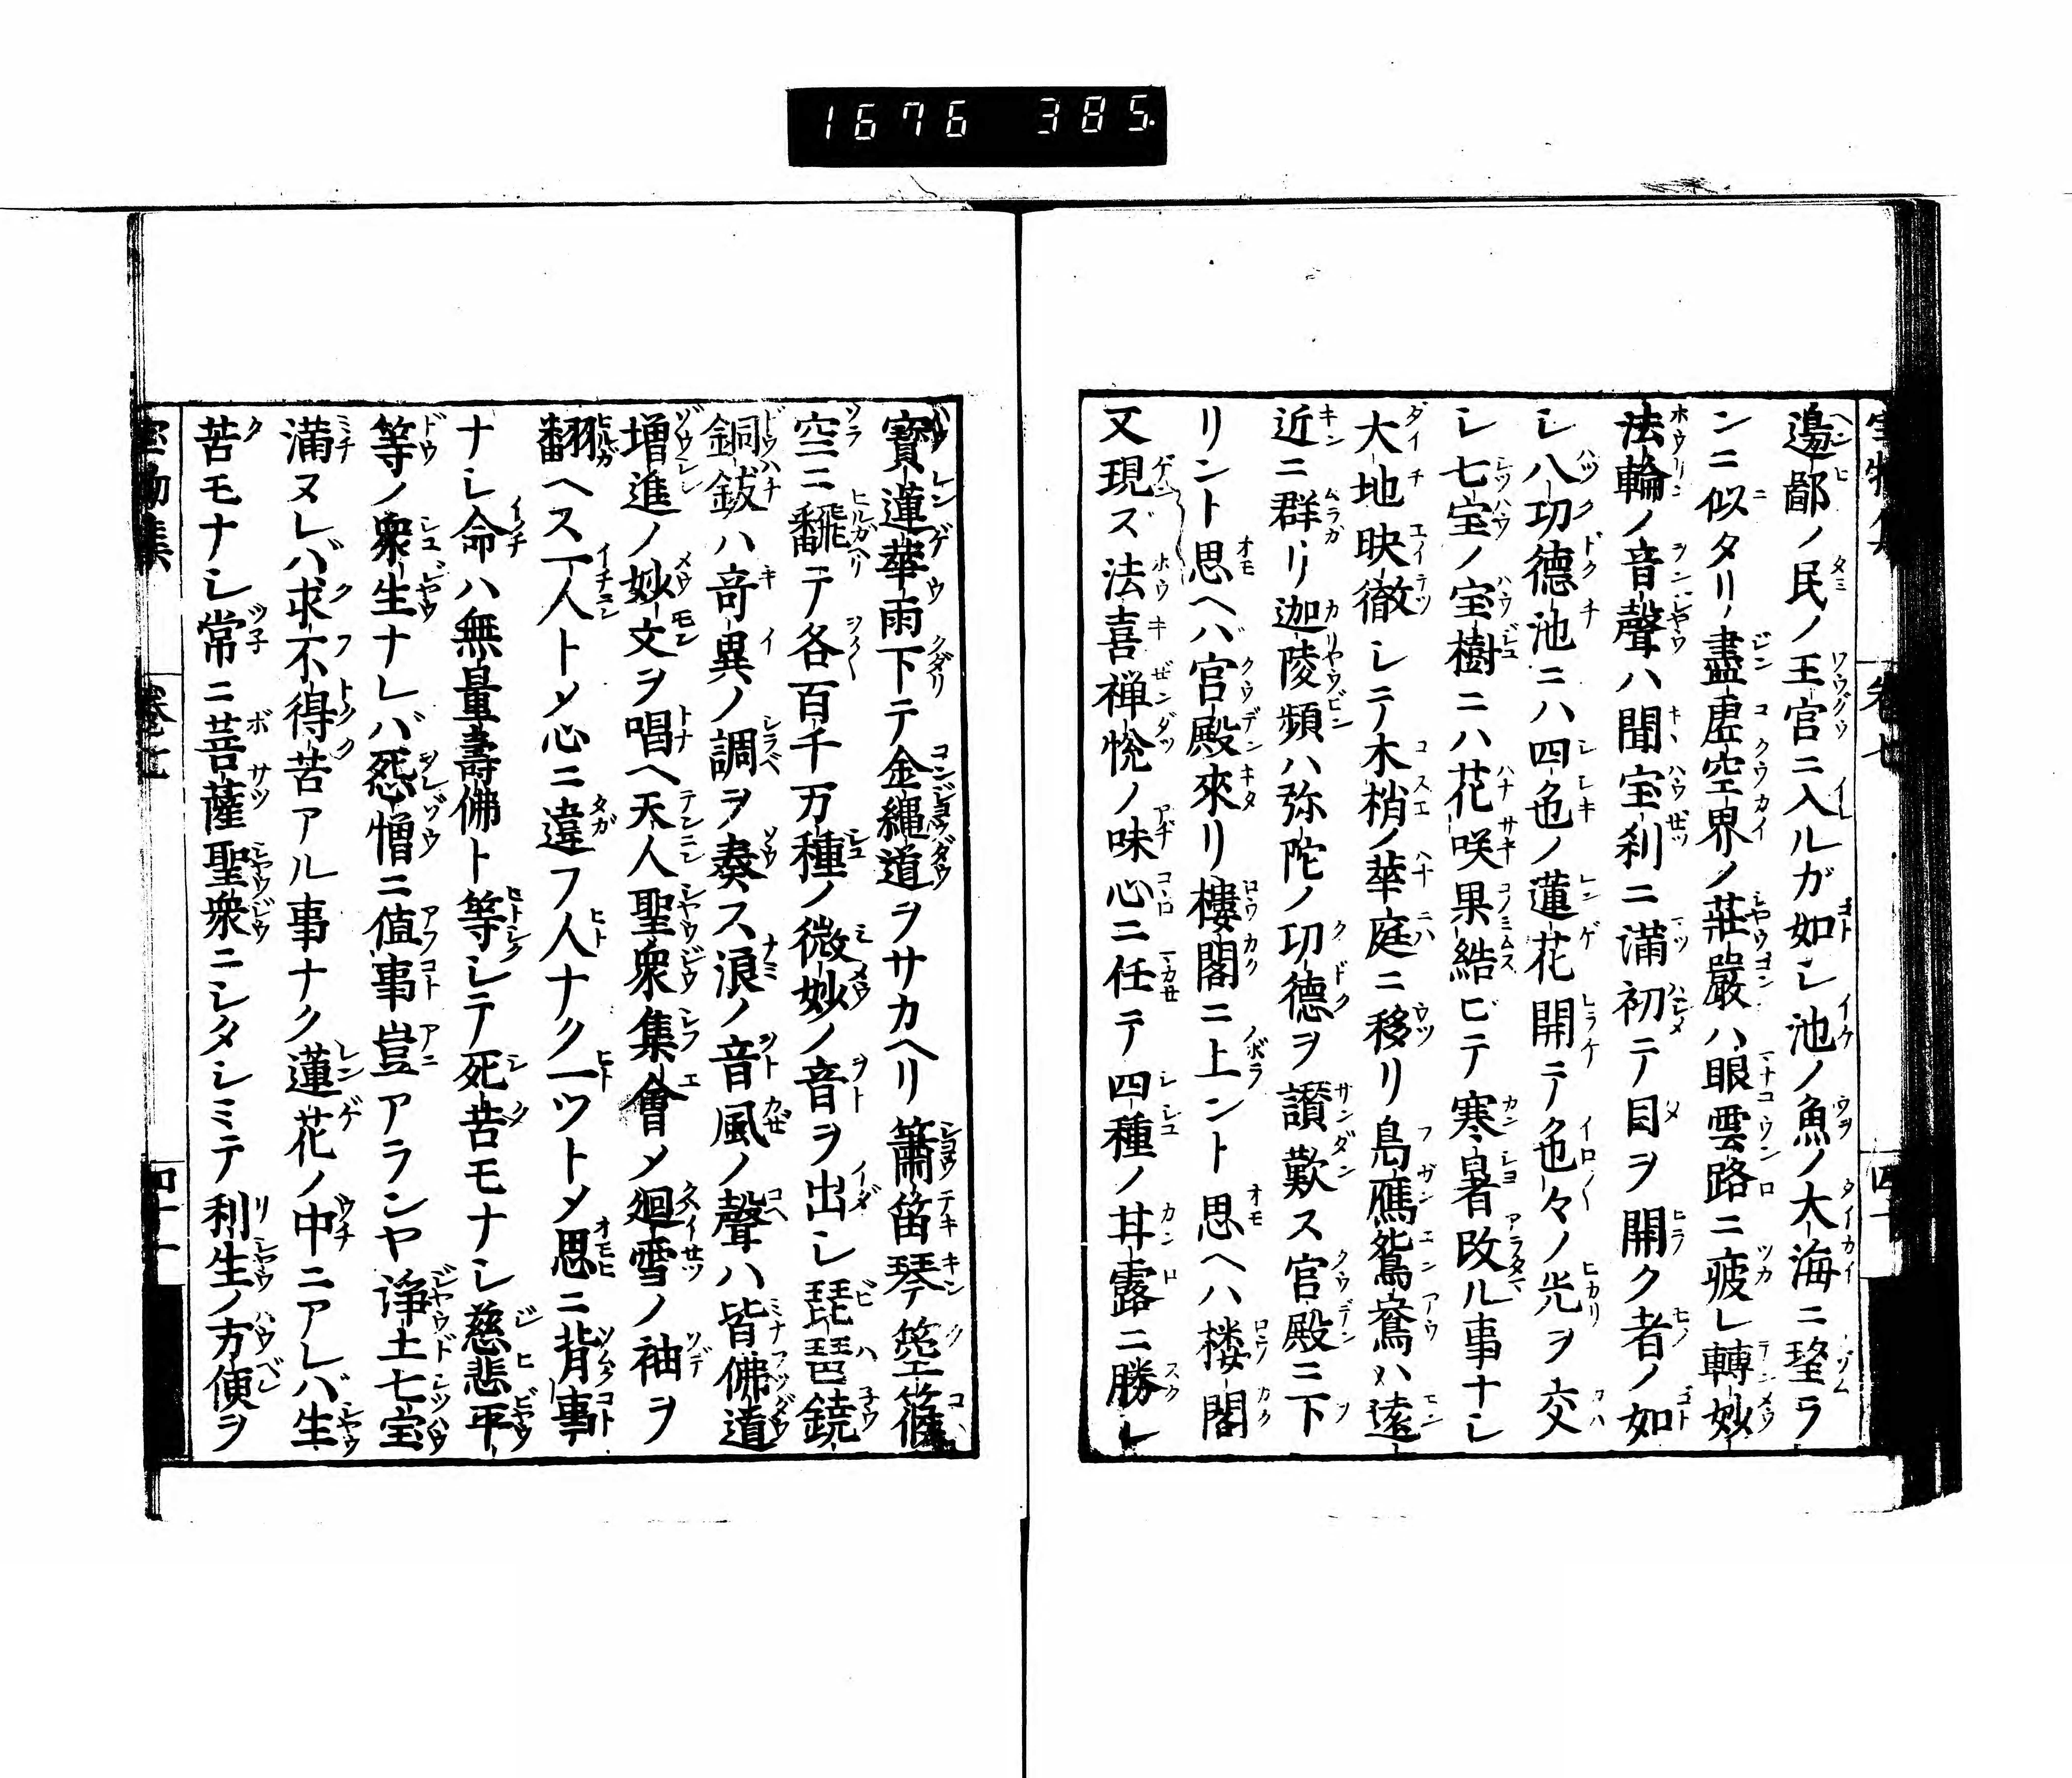 1676 385.
邊鄙ノ民ノ王宮ニ入ルガ如シ池ノ魚ノ大海ニ望ラ
ンニ似タリ盡虚空界ノ莊嚴ハ眼雲路ニ疲レ轉妙
法輪ノ音聲ハ聞宝刹ニ満初テ目ヲ開ク者ノ如
シ八功德池ニハ四色ノ蓮花開テ色々ノ光ヲ交
シ七宝ノ宝樹ニハ花咲果結ビテ寒暑改ル事ナシ
大地映徹シテ木梢ノ華庭ニ移リ鳧鴈鴛鴦ハ遠
近ニ群リ迦陵頻ハ弥陀ノ功德ヲ讃歎ス宮殿ニ下
リント思ヘバ宮殿來リ樓閣ニ上ント思ヘハ楼閣
又現ズ法喜禅悦ノ味心ニ任テ四種ノ甘露ニ勝レ
寳蓮華雨下テ金縄道ヲサカヘリ簫笛琴箜篌
空ニ飜テ各百千万種ノ微妙ノ音ヲ出シ琵琶鐃
銅鈸ハ奇異ノ調ヲ奏ス浪ノ音風ノ聲ハ皆佛道
増進ノ妙文ヲ唱ヘ天人聖衆集會メ廻雪ノ袖ヲ
翻ヘス一人トメ心ニ違フ人ナク一ツトメ思ニ背事
ナシ命ハ無量壽佛ト等シテ死苦モナシ慈悲平
等ノ衆生ナレバ怨憎ニ値事豈アランヤ淨土七宝
満ヌレバ求不得苦アル事ナク蓮花ノ中ニアレバ生
苦モナシ常ニ菩薩聖衆ニシタシミテ利生ノ方便ヲ
宝物集 巻七 四十一